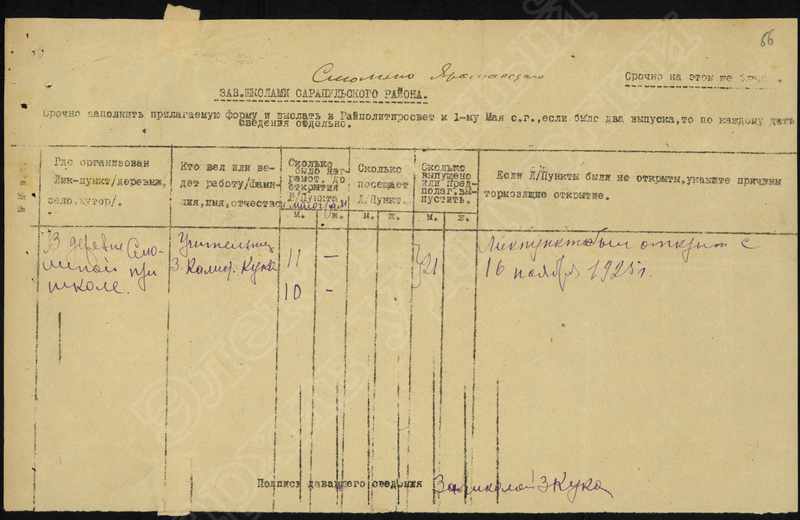 66
Срочно на этом же
ЗАВ.ШКОЛАМИ САРАПУЛЬСКОГО РАЙОНА.
Срочно заполнить прилагаемую форму и выслать в Райполитпросвет к 1-му Мая с.г.,если было два выпуска,то по каждому дать
сведения отдельно.
Где организован
Лик-пункт/деревня,
село,хутор/.
Кто вел или ве-
дет работу/Фами-
лия,имя,отчество
Сколько
было нег-
рамот. до
открытия
Л/Пункта
м.
ж.
Сколько
посещает
Л/Пункт.
м.
ж.
Сколько
выпущено
или пред-
полаг.вы-
пустить.
м.
ж.
Если Л/Пункты были не открыты,укажите причины
тормозящие открытие.
В деревне Смо-
линой при
школе.
Учительниц.
З. Кука
11 —
10 —
21
Ликпункт был открыт с
16 ноября 1925 г.
Подпись дававшего сведения
Зав. школой З Кука